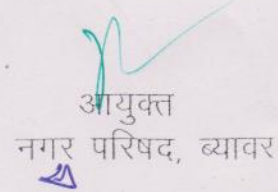 आयुक्त
नगर परिषद, ब्यावर